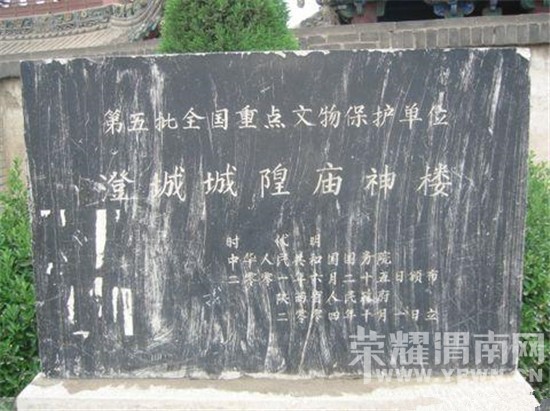 第五批全国重点文物保护单位
澄城城隍庙神楼
时代 明
中华人民共和国国务院
二零零一年六月二十五日颁布
陕西省人民政府
二零零四年十月一日立
荣耀渭南网
WWW.YRWN.CN